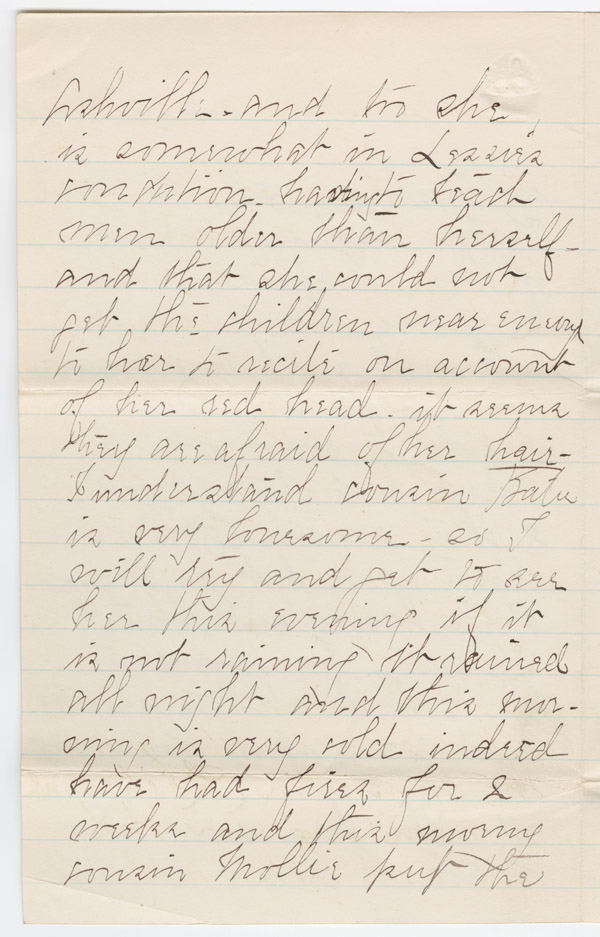 Ashville - and to she
is somewhat in Lessie's
condition - having to teach
men older than herself -
and that she could not
get the children near enough
to her to recite on account
of her red head - it seems
they are afraid of her hair -
I understand cousin Katie
is very lonesome - so I
will try and get to see
her this evening if it
is not raining it rained
all night and this mor-
ning is very cold indeed
have had fires for 2
weeks and this morning
cousin Mollie put the